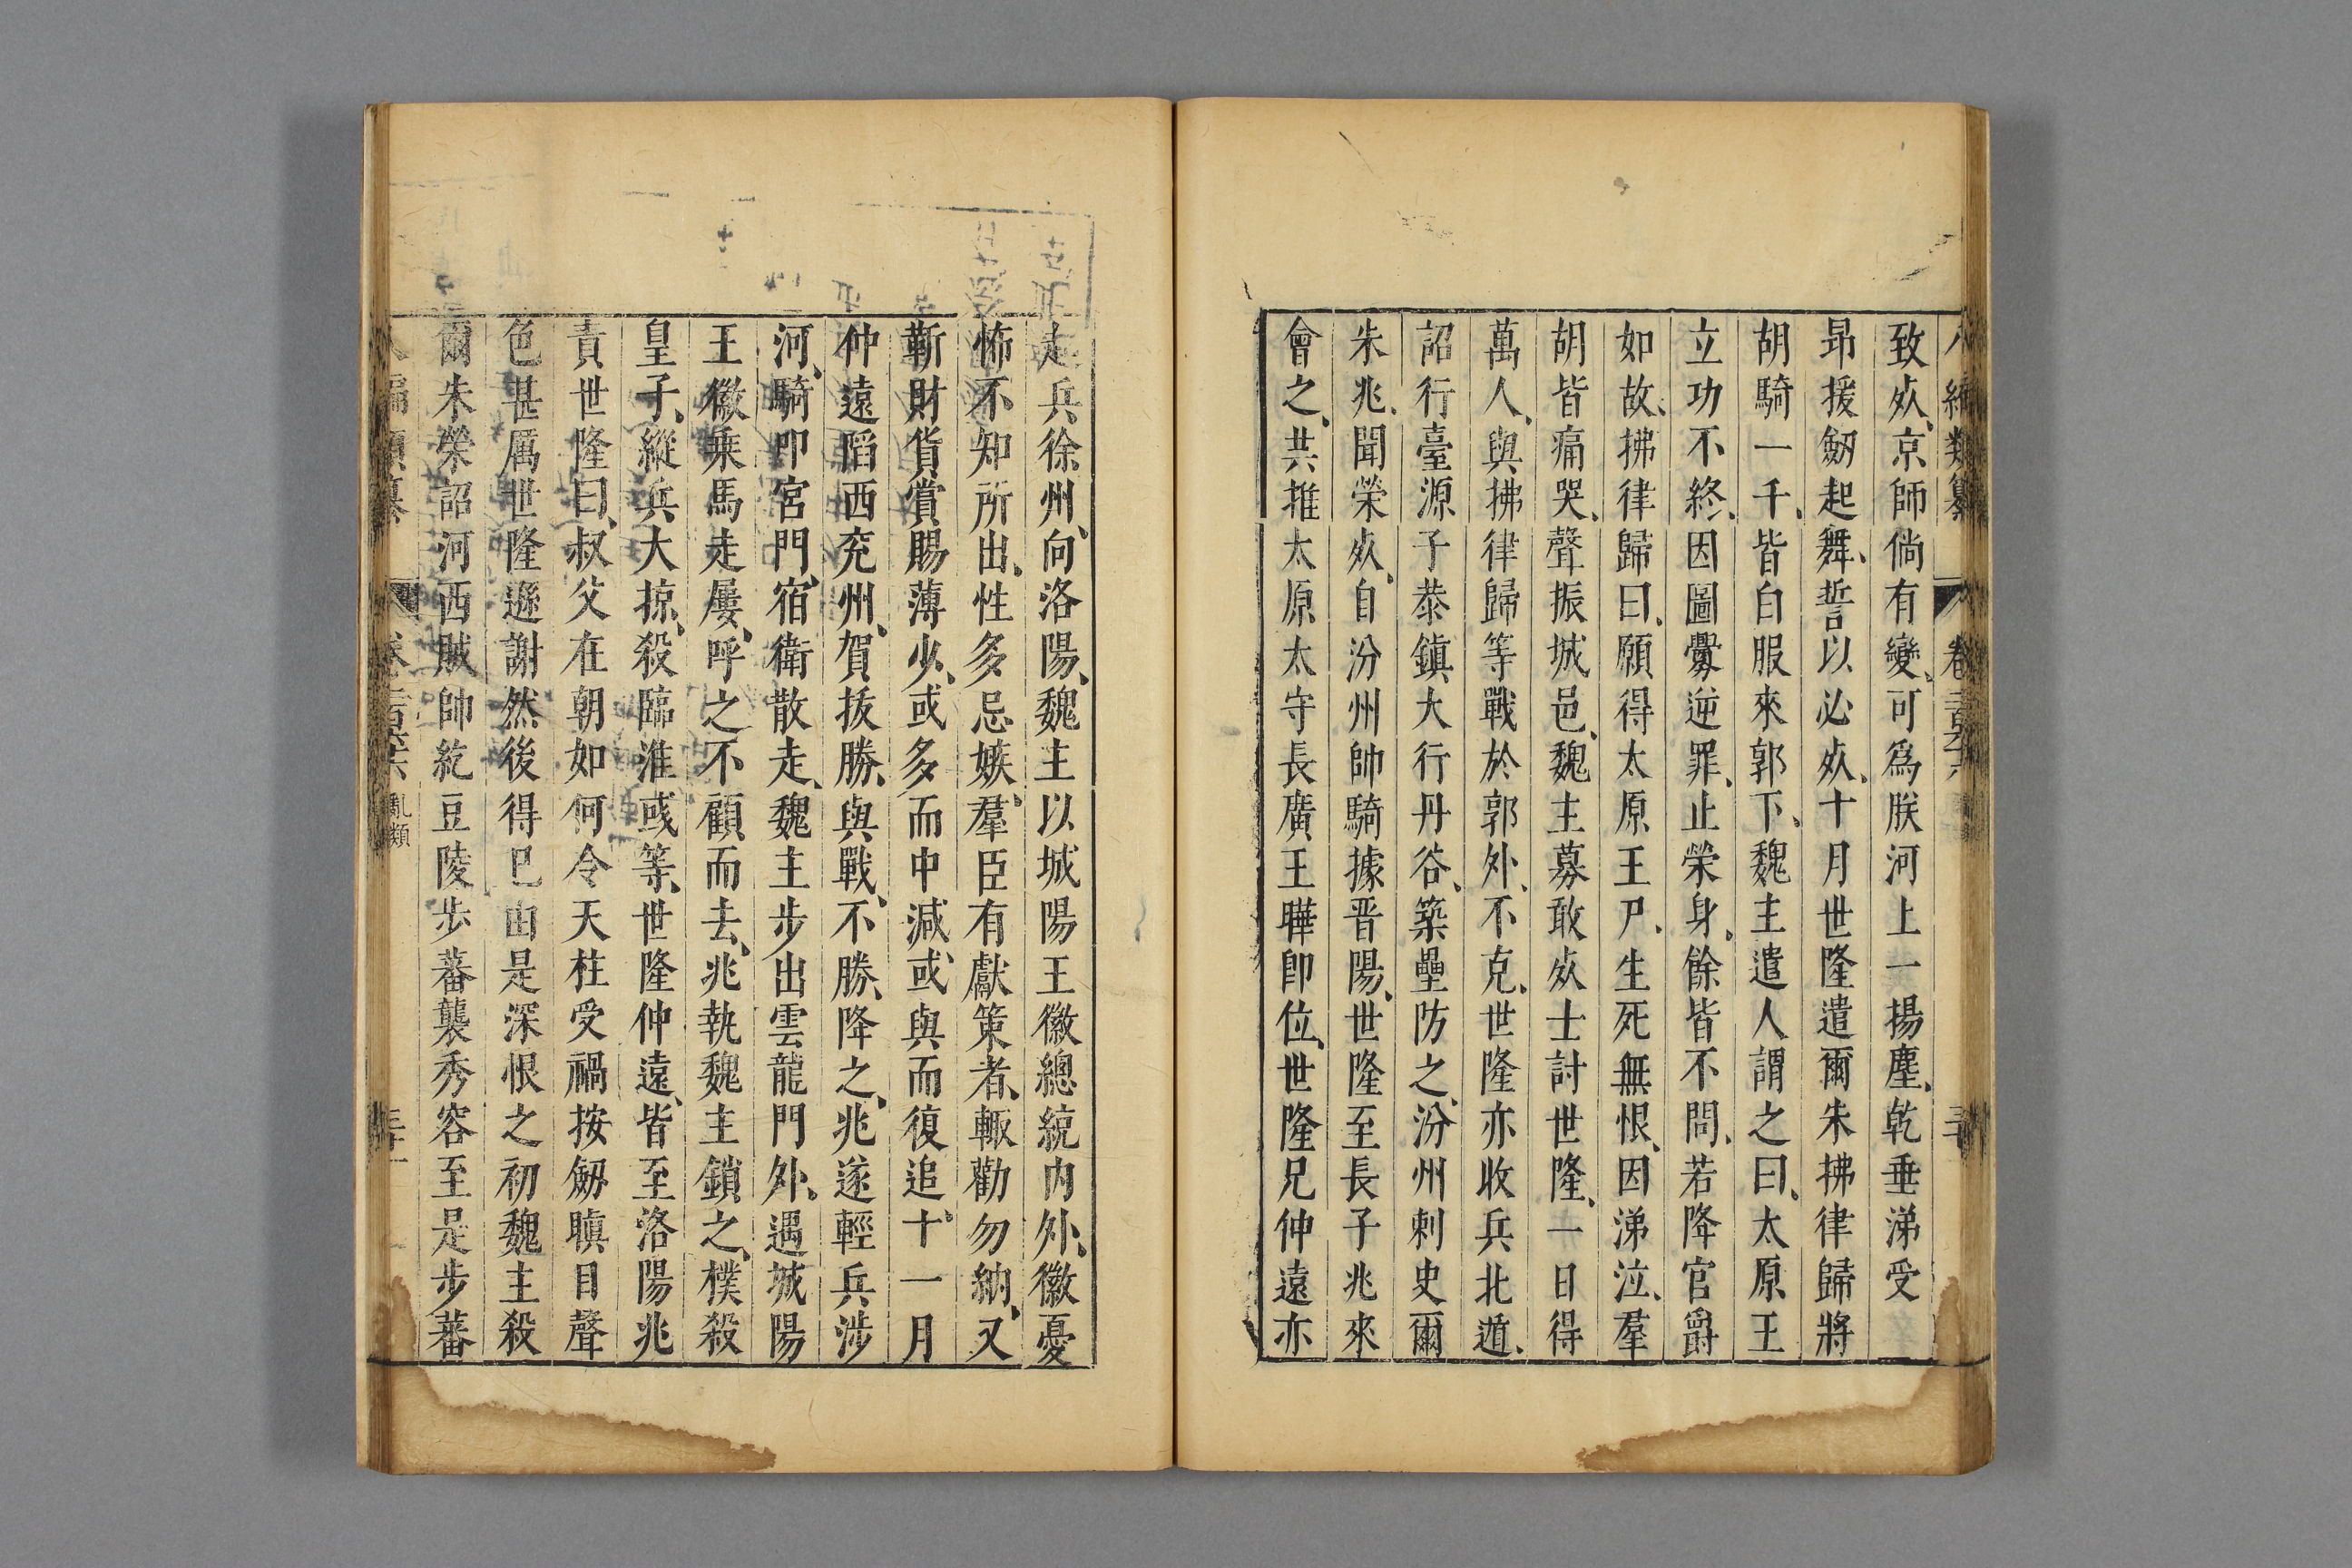 八編類纂 卷二百五六 三十
致㱥、京師倘有變、可爲朕河上一揚塵、乾垂涕受
昻援劒起舞、誓以必㱥、十月世隆遣爾朱拂律歸將
胡騎一千、皆白服來郭下、魏主遣人謂之曰、太原王
立功不終、因圖釁逆罪、止榮身、餘皆不問、若降官爵
如故、拂律歸曰、願得太原王尸、生死無恨、因涕泣、羣
胡皆痛哭、聲振城邑、魏主募敢㱥士討世隆、一日得
萬人、與拂律歸等戰於郭外、不克、世隆亦收兵北遁、
詔行臺源子恭鎮大行丹谷、築壘防之、汾州刺史爾
朱兆、聞榮㱥、自汾州帥騎據晋陽、世隆至長子兆來
會之、共推太原太守長廣王曄卽位、世隆兄仲遠亦
走兵徐州、向洛陽、魏主以城陽王徽總統内外、徽憂
怖不知所出、性多忌嫉、羣臣有獻策者、輙勸勿納、又
靳財貨賞賜薄少、或多而中減、或與而復追、十一月
仲遠䧟西兖州、賀拔勝、與戰、不勝、降之、兆遂輕兵涉
河、騎叩宮門、宿衛散走、魏主步出雲龍門外、遇城陽
王徽乗馬走屢、呼之不顧而去、兆執魏主鎖之、樸殺
皇子、縱兵大掠、殺臨淮彧等、世隆仲遠、皆至洛陽兆
責世隆曰、叔父在朝如何令天柱受禍按劒瞋目聲
色甚厲世隆遜謝然後得已由是深恨之初魏主殺
爾朱榮詔河西賊帥紇豆陵步蕃襲秀容至是步蕃
編類纂 卷二百五六 亂類 三十一